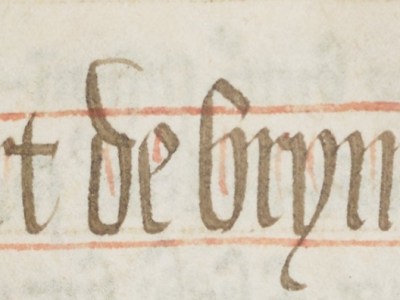 t de bryn